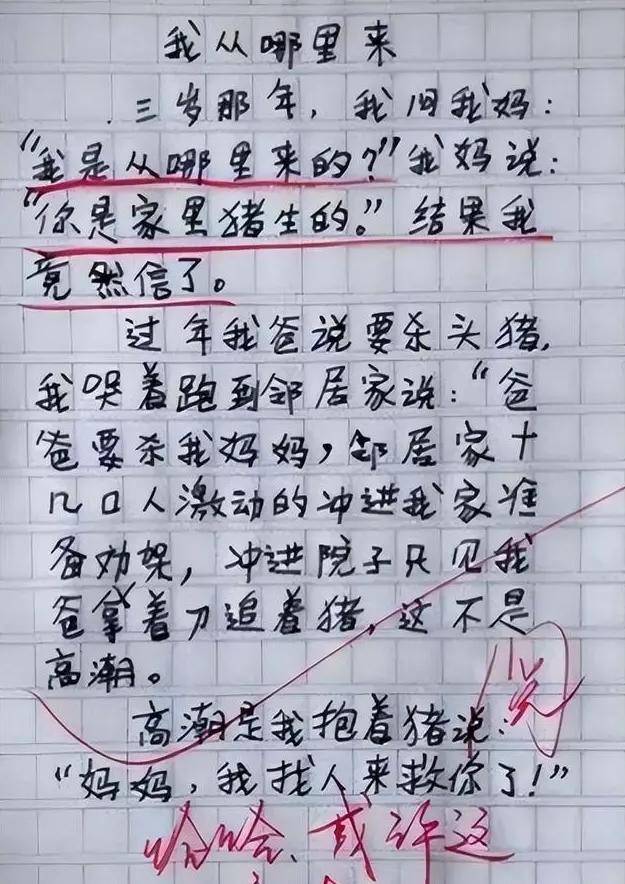 我从哪里来
三岁那年,我问我妈:
“我是从哪里来的?”我妈说:
“你是家里猪生的。”结果我
竟然信了。
过年我爸说要杀头猪,
我哭着跑到邻居家说:“爸
爸要杀我妈妈,邻居家十
几口人激动的冲进我家准
备劝架,冲进院子只见我
爸拿着刀追着猪,这不是
高潮。
高潮是我抱着猪说:
“妈妈,我找人来救你了!”
阅
哈哈、或许这